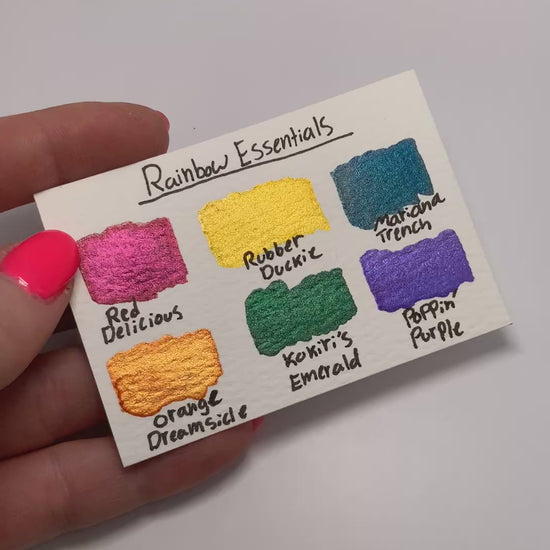 Rainbow Essentials
Red
Delicious
Rubber
Duckie
Mariana
Trench
Orange
Dreamsicle
Kokiri's
Emerald
Poppin'
Purple